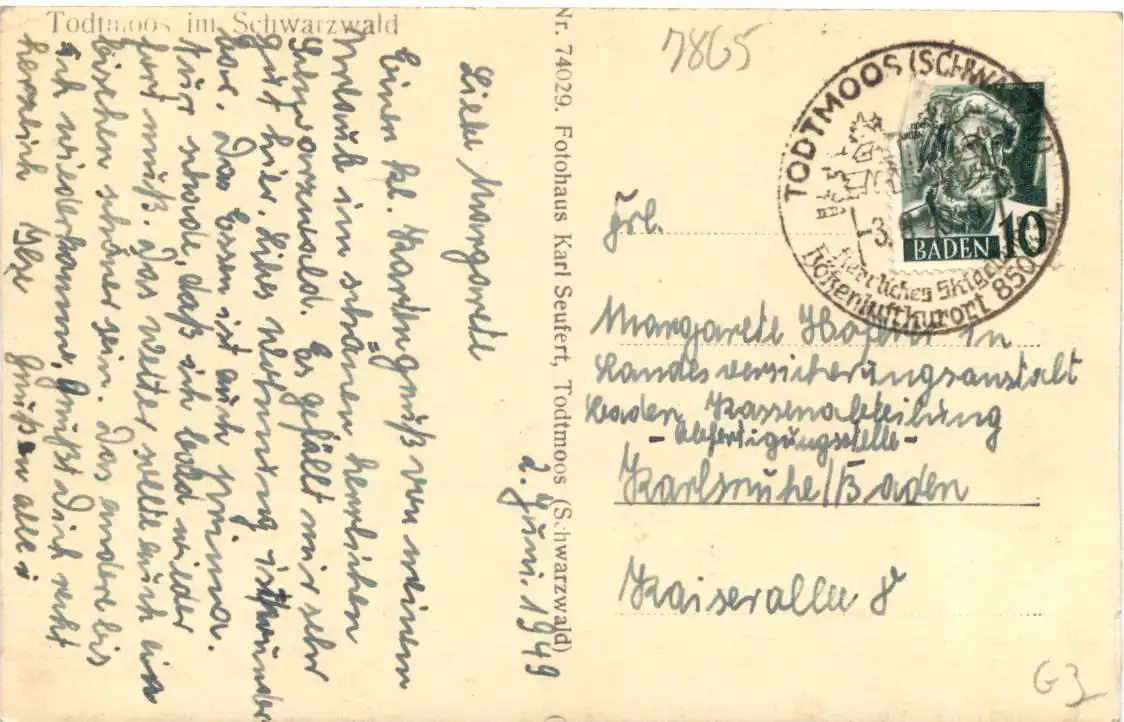 Todtmoos im Schwarzwald
2. Juni. 1949
Liebe Margarete
Einen kl. Kartengruß von meinem
Urlaub im schönen herrlichen
Schwarzwald. Es gefällt mir sehr
gut hier. Liebes Wohnung ist wunder
bar. Das Essen ist auch prima.
Nur schade, daß ich bald wieder
fort muß. Das Wetter sollte auch ein
bischen schöner sein. Das andere bis
ich wiederkomme, Grüßt Dich recht
herzlich Grüßen alle
Nr. 74029. Fotohaus Karl Seufert, Todtmoos (Schwarzwald)
7865
TODTMOOS (SCHWARZWALD)
Herrliches Skigelände
Höhenluftkurort 850
BADEN 10
Frl.
Margarete Hoferer in
Landesversicherungsanstalt
Baden, Kassenabteilung
- Abfertigungsstelle -
Karlsruhe/Baden
Kaiserallee 8
G3